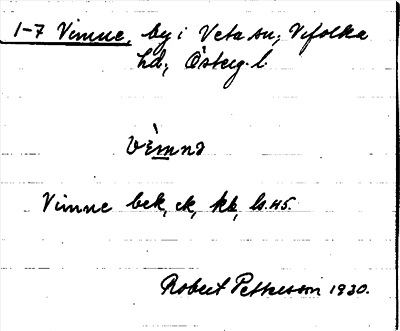 1-7 Vimne, by i Veta sn; Vifolka
hd; Österg. l
vèmnə
Vimne bek, ek, kb, ls. 45.
Robert Petterson 1930.